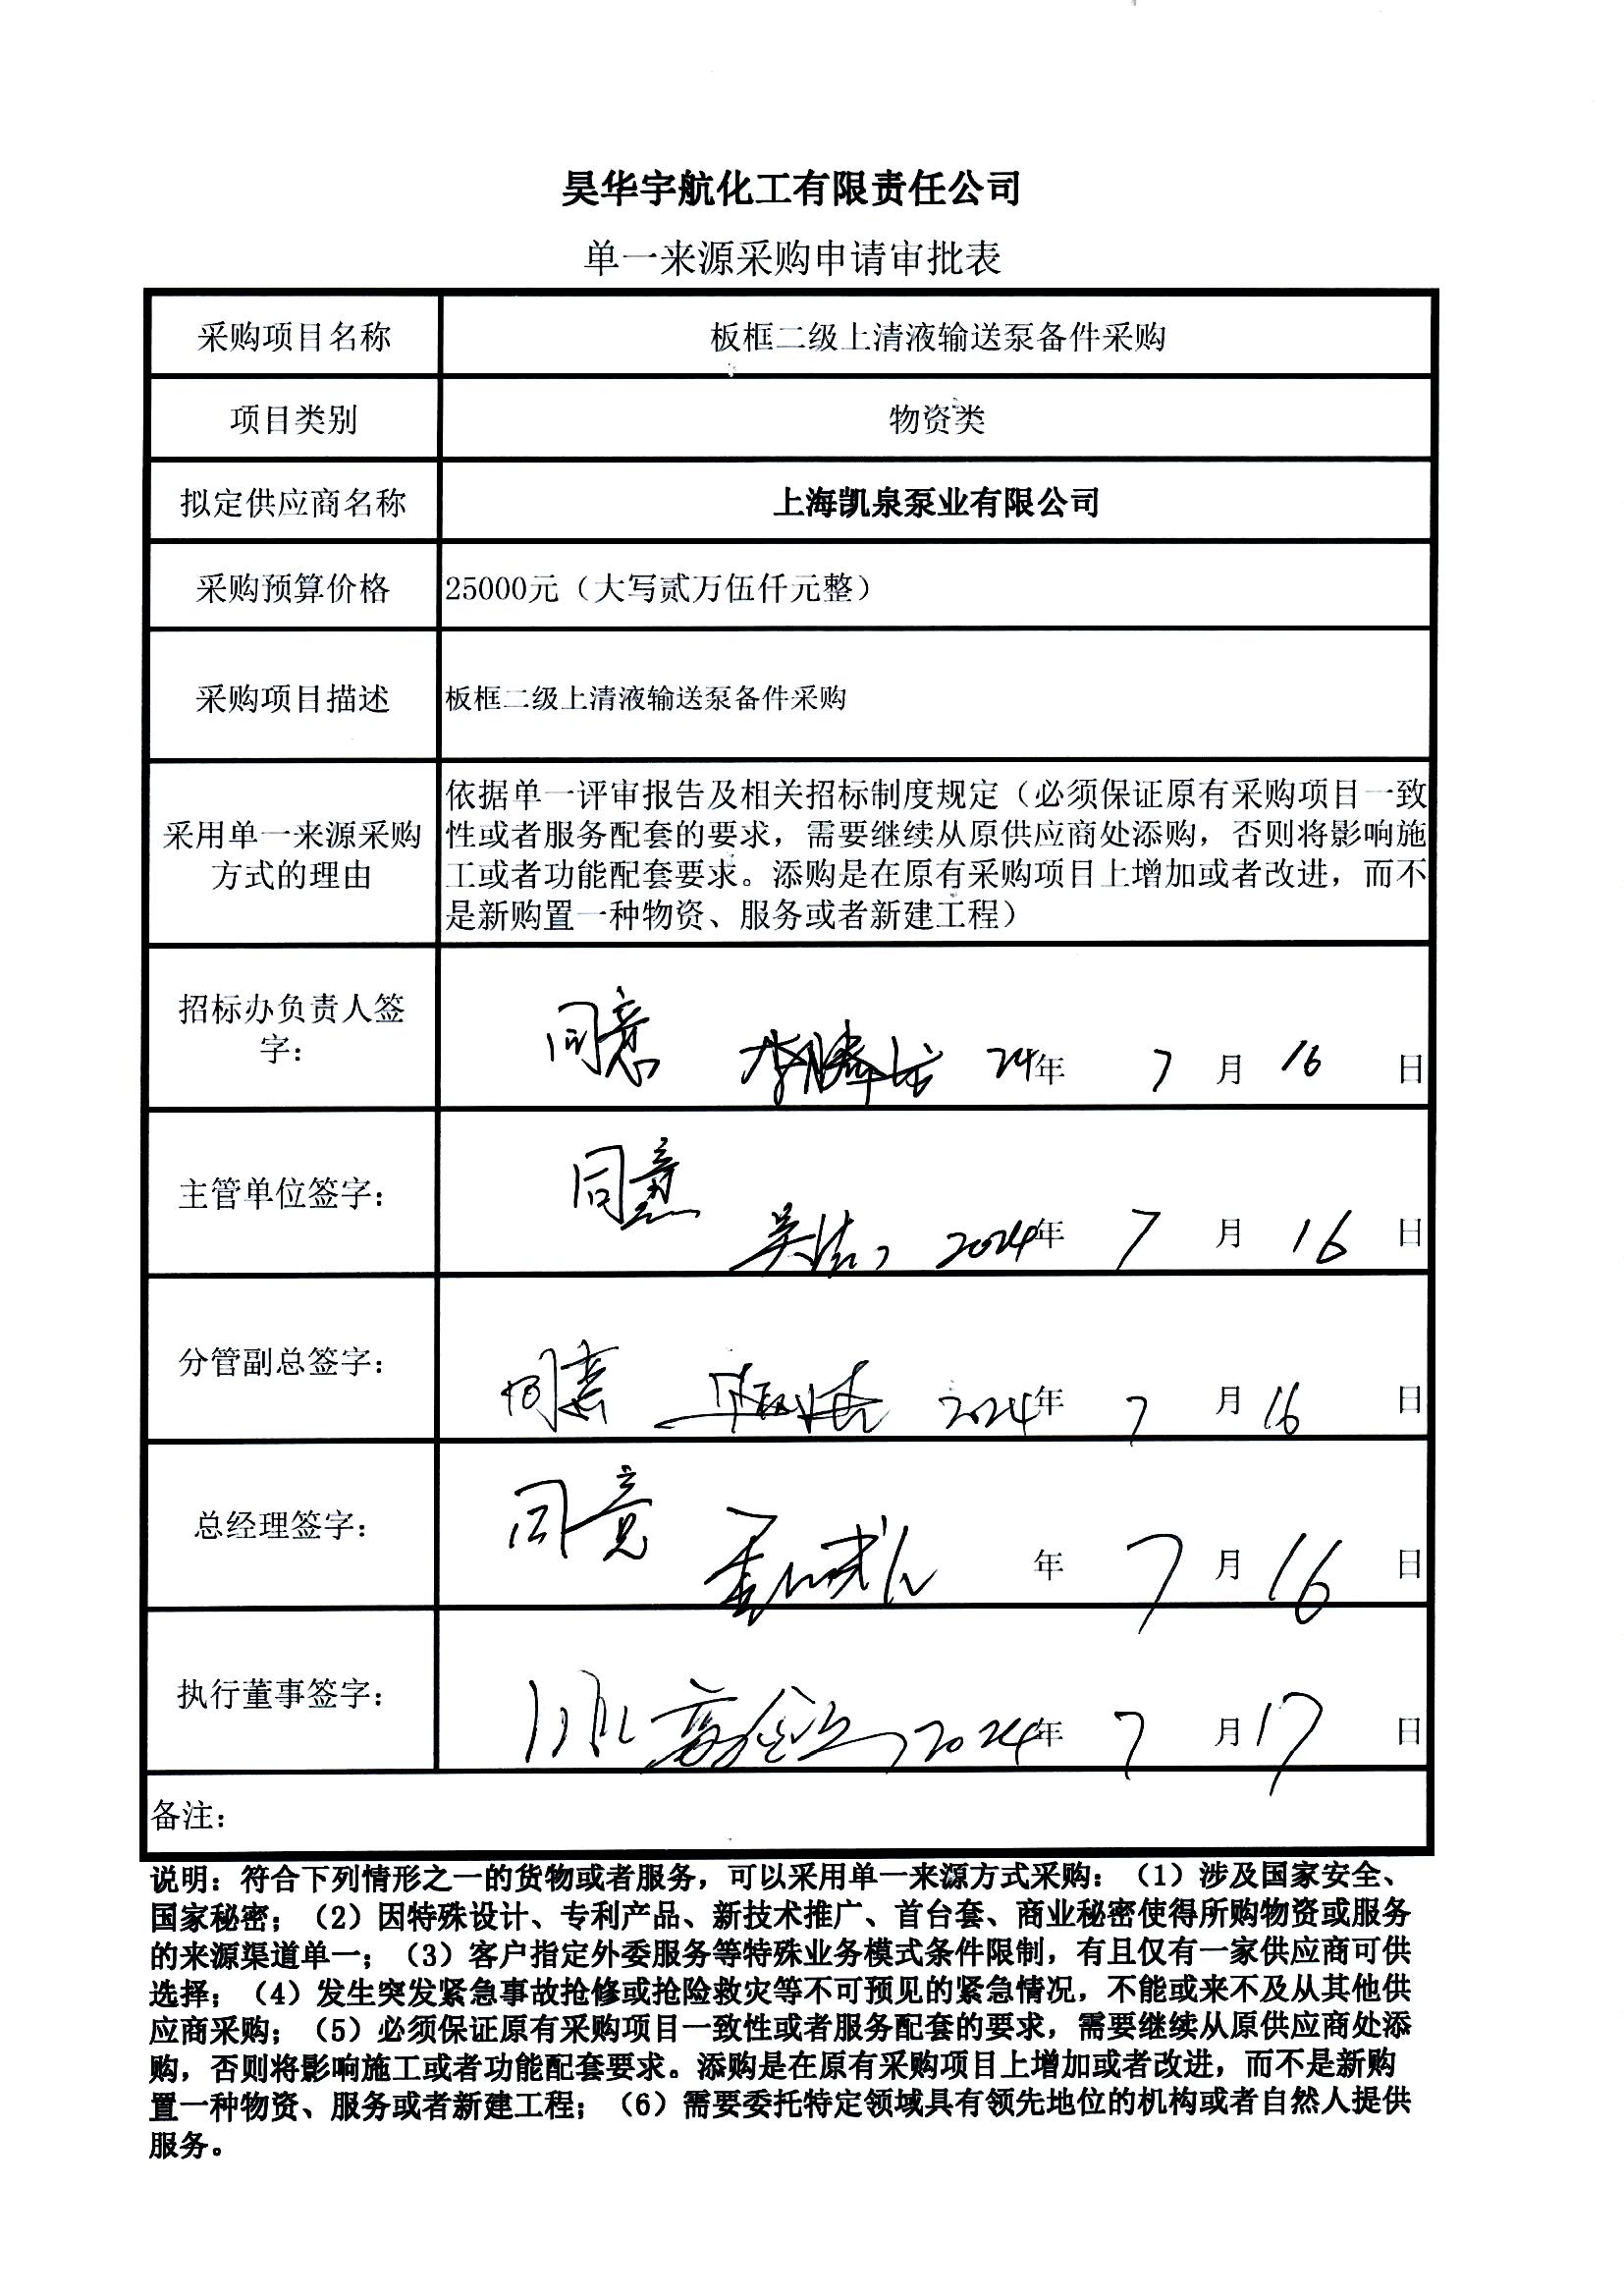 昊华宇航化工有限责任公司
单一来源采购申请审批表
采购项目名称
板框二级上清液输送泵备件采购
项目类别
物资类
拟定供应商名称
上海凯泉泵业有限公司
采购预算价格
25000元（大写贰万伍仟元整）
采购项目描述
板框二级上清液输送泵备件采购
采用单一来源采购
方式的理由
依据单一评审报告及相关招标制度规定（必须保证原有采购项目一致
性或者服务配套的要求，需要继续从原供应商处添购，否则将影响施
工或者功能配套要求。添购是在原有采购项目上增加或者改进，而不
是新购置一种物资、服务或者新建工程）
招标办负责人签
字：
同意 24年 7 月 16 日
主管单位签字：
同意 2024年 7 月 16 日
分管副总签字：
同意 2024年 7 月 16 日
总经理签字：
同意 年 7 月 16 日
执行董事签字：
2024年 7 月 17 日
备注：
说明：符合下列情形之一的货物或者服务，可以采用单一来源方式采购：（1）涉及国家安全、
国家秘密；（2）因特殊设计、专利产品、新技术推广、首台套、商业秘密使得所购物资或服务
的来源渠道单一；（3）客户指定外委服务等特殊业务模式条件限制，有且仅有一家供应商可供
选择；（4）发生突发紧急事故抢修或抢险救灾等不可预见的紧急情况，不能或来不及从其他供
应商采购；（5）必须保证原有采购项目一致性或者服务配套的要求，需要继续从原供应商处添
购，否则将影响施工或者功能配套要求。添购是在原有采购项目上增加或者改进，而不是新购
置一种物资、服务或者新建工程；（6）需要委托特定领域具有领先地位的机构或者自然人提供
服务。